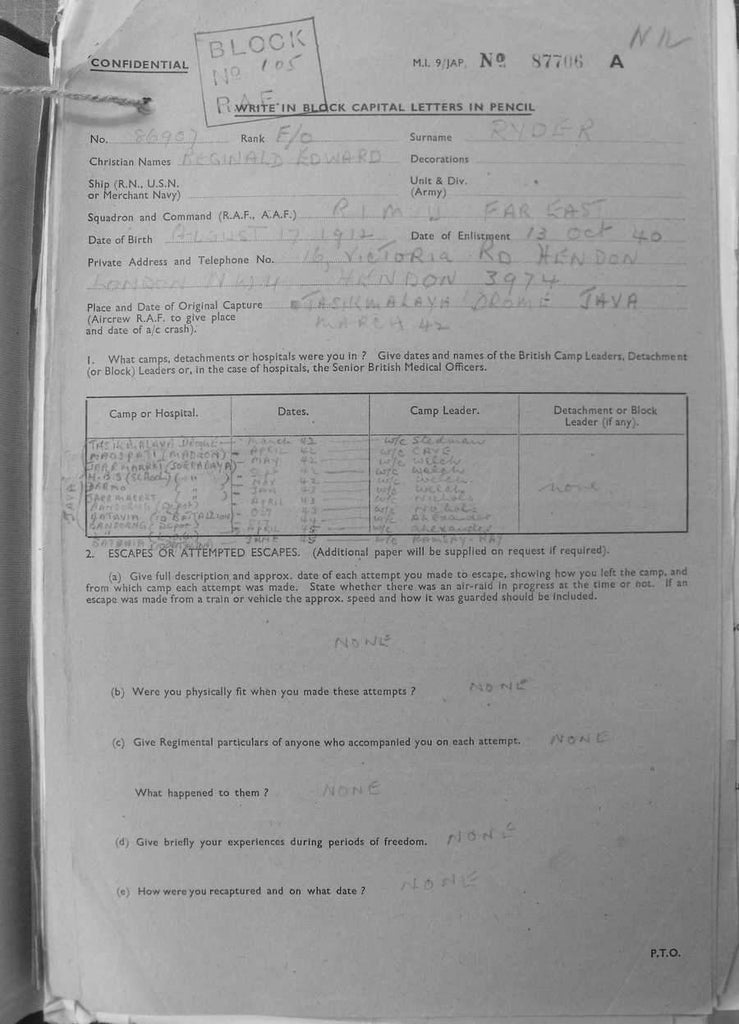 NIL
BLOCK
CONFIDENTIAL
Nº 105
M.I. 9/JAP. Nº 87706 A
R.A.F.
WRITE IN BLOCK CAPITAL LETTERS IN PENCIL
No. 86907 Rank F/O Surname RYDER
Christian Names REGINALD EDWARD Decorations
Ship (R.N., U.S.N. or Merchant Navy) Unit & Div. (Army)
Squadron and Command (R.A.F., A.A.F.) R I M U FAR EAST
Date of Birth AUGUST 17 1912 Date of Enlistment 13 Oct 40
Private Address and Telephone No. 16, VICTORIA RD HENDON
LONDON N.W.4 HENDON 3974
Place and Date of Original Capture TASIKMALAYA DROME JAVA
(Aircrew R.A.F. to give place MARCH 42
and date of a/c crash).
1. What camps, detachments or hospitals were you in ? Give dates and names of the British Camp Leaders, Detachment
(or Block) Leaders or, in the case of hospitals, the Senior British Medical Officers.
Camp or Hospital. Dates. Camp Leader. Detachment or Block
Leader (if any).
TASIKMALAYA Drome March 42 W/C Steedman
(MADIOEN) APRIL 42 W/C CAVE
JAARMARKT (SOERABAYA) MAY 42 W/C Welch
W/C Welch
W/C Welch none
JAN 43 W/C Welch
JAARMARKT APRIL 43 W/C Nichols
BANDOENG (Depot) OCT 43 W/C Nichols
BATAVIA W/C Alexander
BANDOENG (Depot) APRIL 45 W/C Alexander
BATAVIA JUNE 45 W/C RAMSAY-RAY
JAVA
2. ESCAPES OR ATTEMPTED ESCAPES. (Additional paper will be supplied on request if required).
(a) Give full description and approx. date of each attempt you made to escape, showing how you left the camp, and
from which camp each attempt was made. State whether there was an air-raid in progress at the time or not. If an
escape was made from a train or vehicle the approx. speed and how it was guarded should be included.
NONE
(b) Were you physically fit when you made these attempts ? NONE
(c) Give Regimental particulars of anyone who accompanied you on each attempt. NONE
What happened to them ? NONE
(d) Give briefly your experiences during periods of freedom. NONE
(e) How were you recaptured and on what date ? NONE
P.T.O.